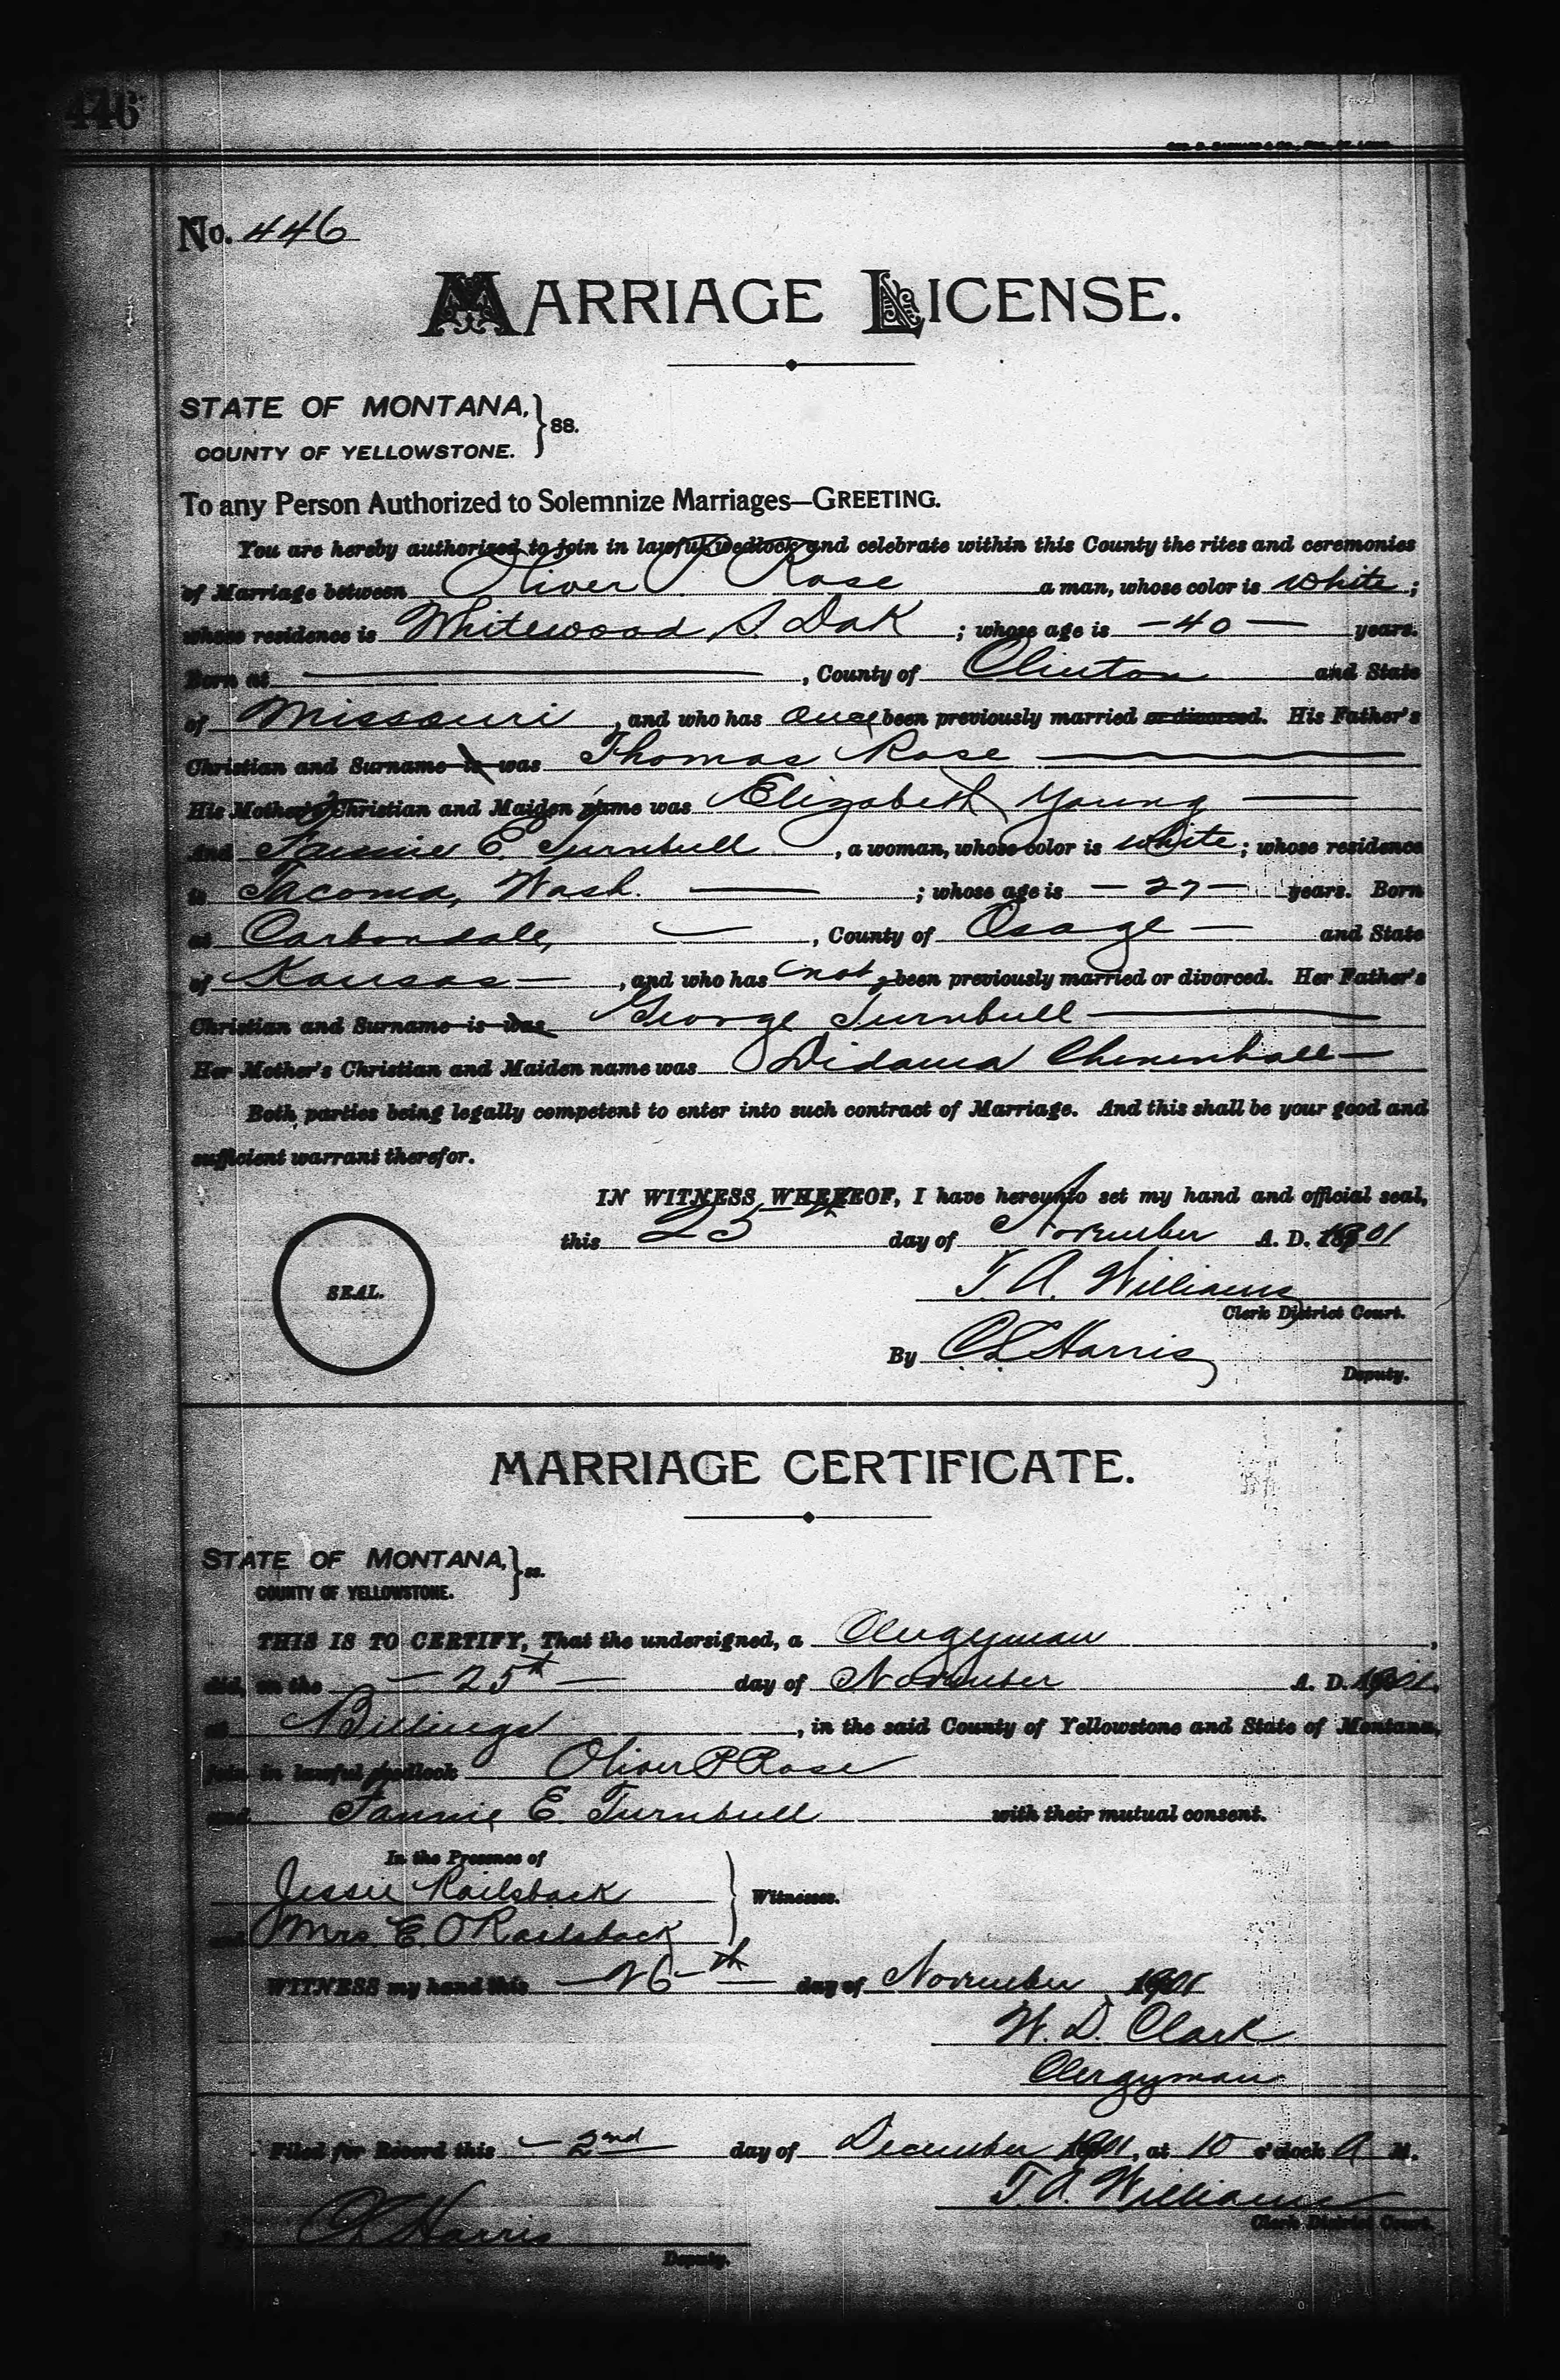 446
No. 446
MARRIAGE LICENSE.
STATE OF MONTANA, } SS.
COUNTY OF YELLOWSTONE.
To any Person Authorized to Solemnize Marriages—GREETING.
You are hereby authorized to join in lawful wedlock and celebrate within this County the rites and ceremonies
of Marriage between Oliver P. Rose a man, whose color is white;
whose residence is Whitewood S. Dak; whose age is —40— years.
Born at ———, County of Clinton and State
of Missouri, and who has once been previously married or divorced. His Father's
Christian and Surname is was Thomas Rose
His Mother's Christian and Maiden name was Elizabeth Young
And Fannie E. Turnbull, a woman, whose color is white; whose residence
is Tacoma, Wash. ; whose age is —27— years. Born
at Carbondale, , County of Osage — and State
of Kansas —, and who has not been previously married or divorced. Her Father's
Christian and Surname is was George Turnbull
Her Mother's Christian and Maiden name was Didama
Both parties being legally competent to enter into such contract of Marriage. And this shall be your good and
sufficient warrant therefor.
IN WITNESS WHEREOF, I have hereunto set my hand and official seal,
this 25th day of November A. D. 1901
SEAL.
T. A. Williams
Clerk District Court.
By C L Harris
Deputy.
MARRIAGE CERTIFICATE.
STATE OF MONTANA, } ss.
COUNTY OF YELLOWSTONE.
THIS IS TO CERTIFY, That the undersigned, a Clergyman,
did, on the —25th— day of November A. D. 1901,
at Billings, in the said County of Yellowstone and State of Montana,
join in lawful wedlock Oliver P Rose
and Fannie E. Turnbull with their mutual consent.
In the Presence of
Jessie Railsback
and Mrs. E. O Railsback } Witnesses.
WITNESS my hand this —26th— day of November 1901
W. D. Clark
Clergyman
Filed for Record this —2nd day of December 1901, at 10 o'clock A M.
T. A. Williams
Clerk District Court.
By C L Harris
Deputy.